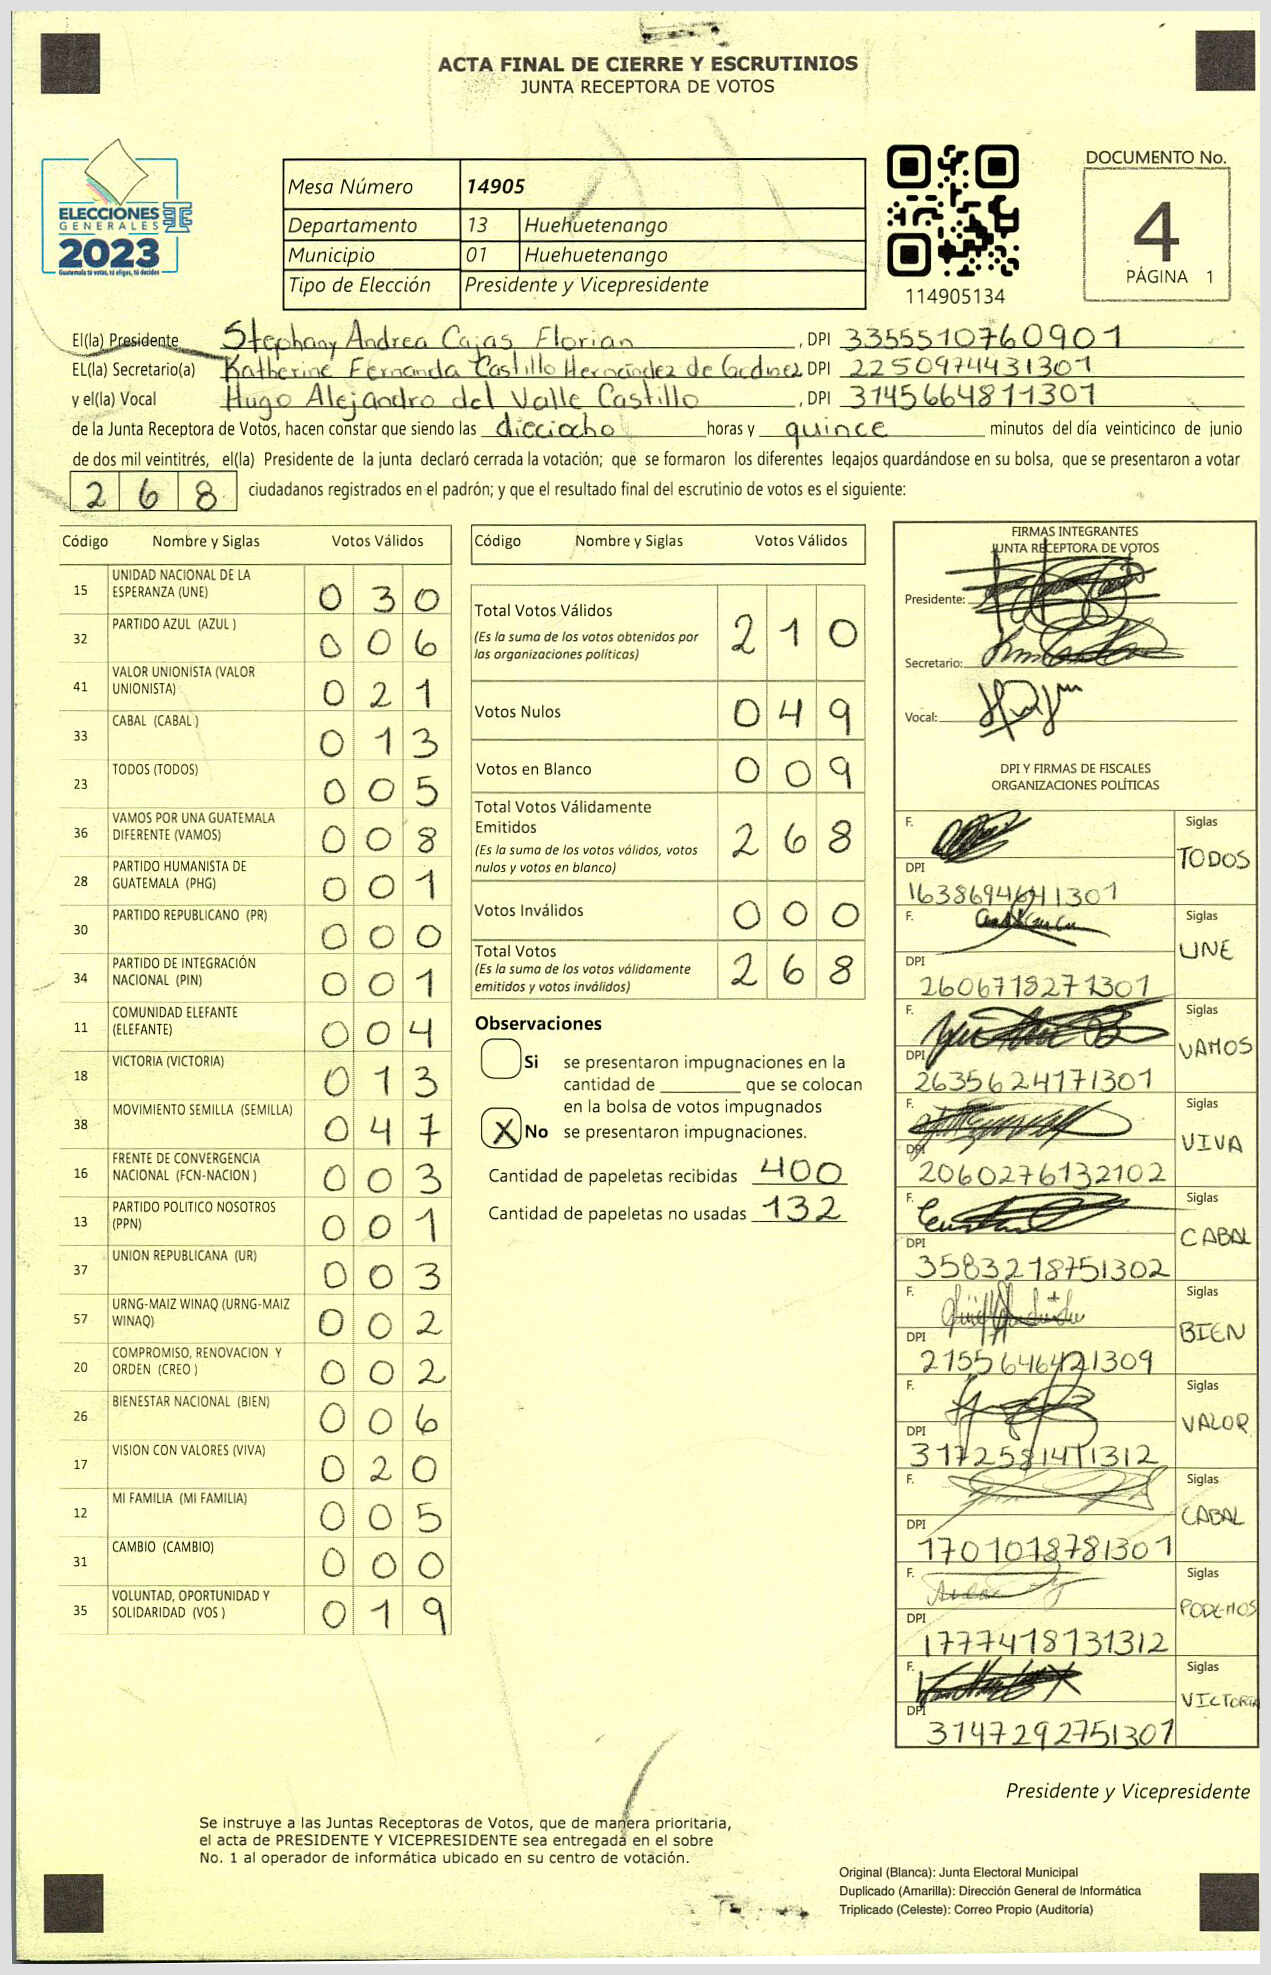 ACTA FINAL DE CIERRE Y ESCRUTINIOS
JUNTA RECEPTORA DE VOTOS
ELECCIONES
GENERALES
2023
Guatemala tú votas, tú eliges, tú decides
Mesa Número 14905
Departamento 13 Huehuetenango
Municipio 01 Huehuetenango
Tipo de Elección Presidente y Vicepresidente
114905134
DOCUMENTO No.
4
PÁGINA 1
El(la) Presidente Stephany Andrea Cajas Florian, DPI 3355510760901
EL(la) Secretario(a) Katherine Fernanda Castillo Hernández de DPI 2250974431301
y el(la) Vocal Hugo Alejandro del Valle Castillo, DPI 3145664811301
de la Junta Receptora de Votos, hacen constar que siendo las dieciocho horas y quince minutos del día veinticinco de junio
de dos mil veintitrés, el(la) Presidente de la junta declaró cerrada la votación; que se formaron los diferentes legajos quardándose en su bolsa, que se presentaron a votar
268 ciudadanos registrados en el padrón; y que el resultado final del escrutinio de votos es el siguiente:
Código Nombre y Siglas Votos Válidos
15 UNIDAD NACIONAL DE LA ESPERANZA (UNE) 030
32 PARTIDO AZUL (AZUL ) 006
41 VALOR UNIONISTA (VALOR UNIONISTA) 021
33 CABAL (CABAL ) 013
23 TODOS (TODOS) 005
36 VAMOS POR UNA GUATEMALA DIFERENTE (VAMOS) 008
28 PARTIDO HUMANISTA DE GUATEMALA (PHG) 001
30 PARTIDO REPUBLICANO (PR) 000
34 PARTIDO DE INTEGRACIÓN NACIONAL (PIN) 001
11 COMUNIDAD ELEFANTE (ELEFANTE) 004
18 VICTORIA (VICTORIA) 013
38 MOVIMIENTO SEMILLA (SEMILLA) 047
16 FRENTE DE CONVERGENCIA NACIONAL (FCN-NACION ) 003
13 PARTIDO POLITICO NOSOTROS (PPN) 001
37 UNION REPUBLICANA (UR) 003
57 URNG-MAIZ WINAQ (URNG-MAIZ WINAQ) 002
20 COMPROMISO, RENOVACION Y ORDEN (CREO ) 002
26 BIENESTAR NACIONAL (BIEN) 006
17 VISION CON VALORES (VIVA) 020
12 MI FAMILIA (MI FAMILIA) 005
31 CAMBIO (CAMBIO) 000
35 VOLUNTAD, OPORTUNIDAD Y SOLIDARIDAD (VOS ) 019
Código Nombre y Siglas Votos Válidos
Total Votos Válidos 210
(Es la suma de los votos obtenidos por
las organizaciones políticas)
Votos Nulos 049
Votos en Blanco 009
Total Votos Válidamente
Emitidos 268
(Es la suma de los votos válidos, votos
nulos y votos en blanco)
Votos Inválidos 000
Total Votos 268
(Es la suma de los votos válidamente
emitidos y votos inválidos)
Observaciones
Si se presentaron impugnaciones en la
cantidad de ________ que se colocan
en la bolsa de votos impugnados
X No se presentaron impugnaciones.
Cantidad de papeletas recibidas 400
Cantidad de papeletas no usadas 132
FIRMAS INTEGRANTES
JUNTA RECEPTORA DE VOTOS
Presidente:
Secretario:
Vocal:
DPI Y FIRMAS DE FISCALES
ORGANIZACIONES POLÍTICAS
F. Siglas
TODOS
DPI
1638694641301
F. Siglas
UNE
DPI
2606718271301
F. Siglas
VAMOS
DPI
2635624171301
F. Siglas
VIVA
DPI
2060276132102
F. Siglas
CABAL
DPI
3583218751302
F. Siglas
BIEN
DPI
2155646421309
F. Siglas
VALOR
DPI
3172581411312
F. Siglas
CABAL
DPI
1701018781301
F. Siglas
PODEMOS
DPI
1777418131312
F. Siglas
VICTORIA
DPI
3147292751301
Presidente y Vicepresidente
Se instruye a las Juntas Receptoras de Votos, que de manera prioritaria,
el acta de PRESIDENTE Y VICEPRESIDENTE sea entregada en el sobre
No. 1 al operador de informática ubicado en su centro de votación.
Original (Blanca): Junta Electoral Municipal
Duplicado (Amarilla): Dirección General de Informática
Triplicado (Celeste): Correo Propio (Auditoría)